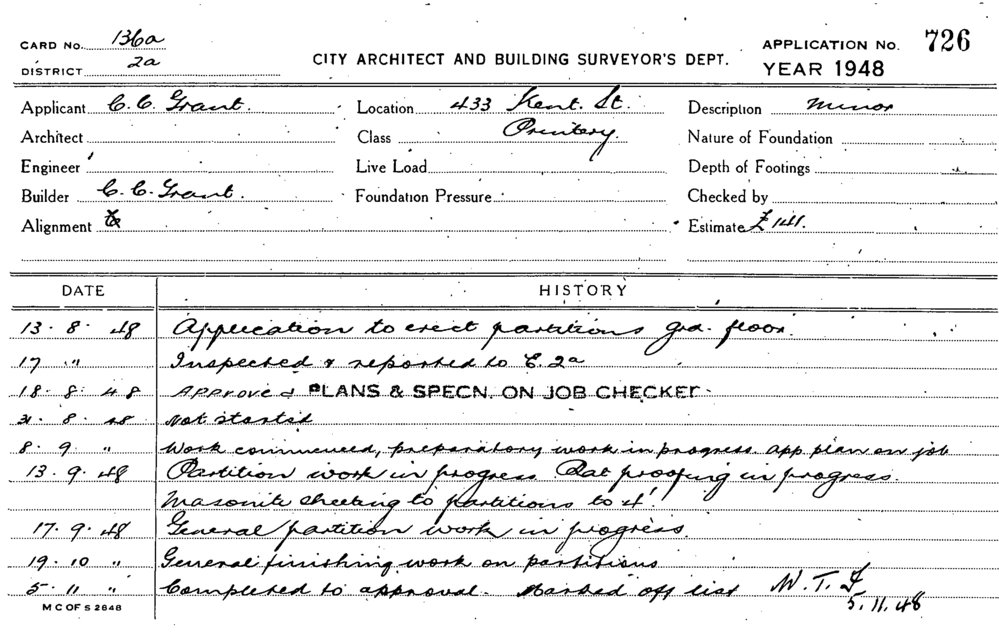 CARD No. 136a
DISTRICT 2a
CITY ARCHITECT AND BUILDING SURVEYOR'S DEPT.
APPLICATION No. 726
YEAR 1948
Applicant C. C. Grant. Location 433 Kent. St. Description Minor
Architect Class Printery. Nature of Foundation
Engineer Live Load Depth of Footings
Builder C. C. Grant. Foundation Pressure Checked by
Alignment Estimate £141.
DATE HISTORY
13 . 8 . 48 Application to erect partitions grd. floor.
17 " Inspected & reported to C. 2a
18 . 8 . 48 Approved PLANS & SPECN. ON JOB CHECKED
31 . 8 . 48 Not started
8 . 9 . " Work commenced, preparatory work in progress. app plan on job
13 . 9 . 48 Partition work in progress. Rat proofing in progress.
Masonite sheeting to partitions to 4'.
17 . 9 . 48 General partition work in progress.
19 . 10 " General finishing work on partitions
5 . 11 " Completed to approval. Marked off list W. T. F
5. 11. 48
M C OF S 2848